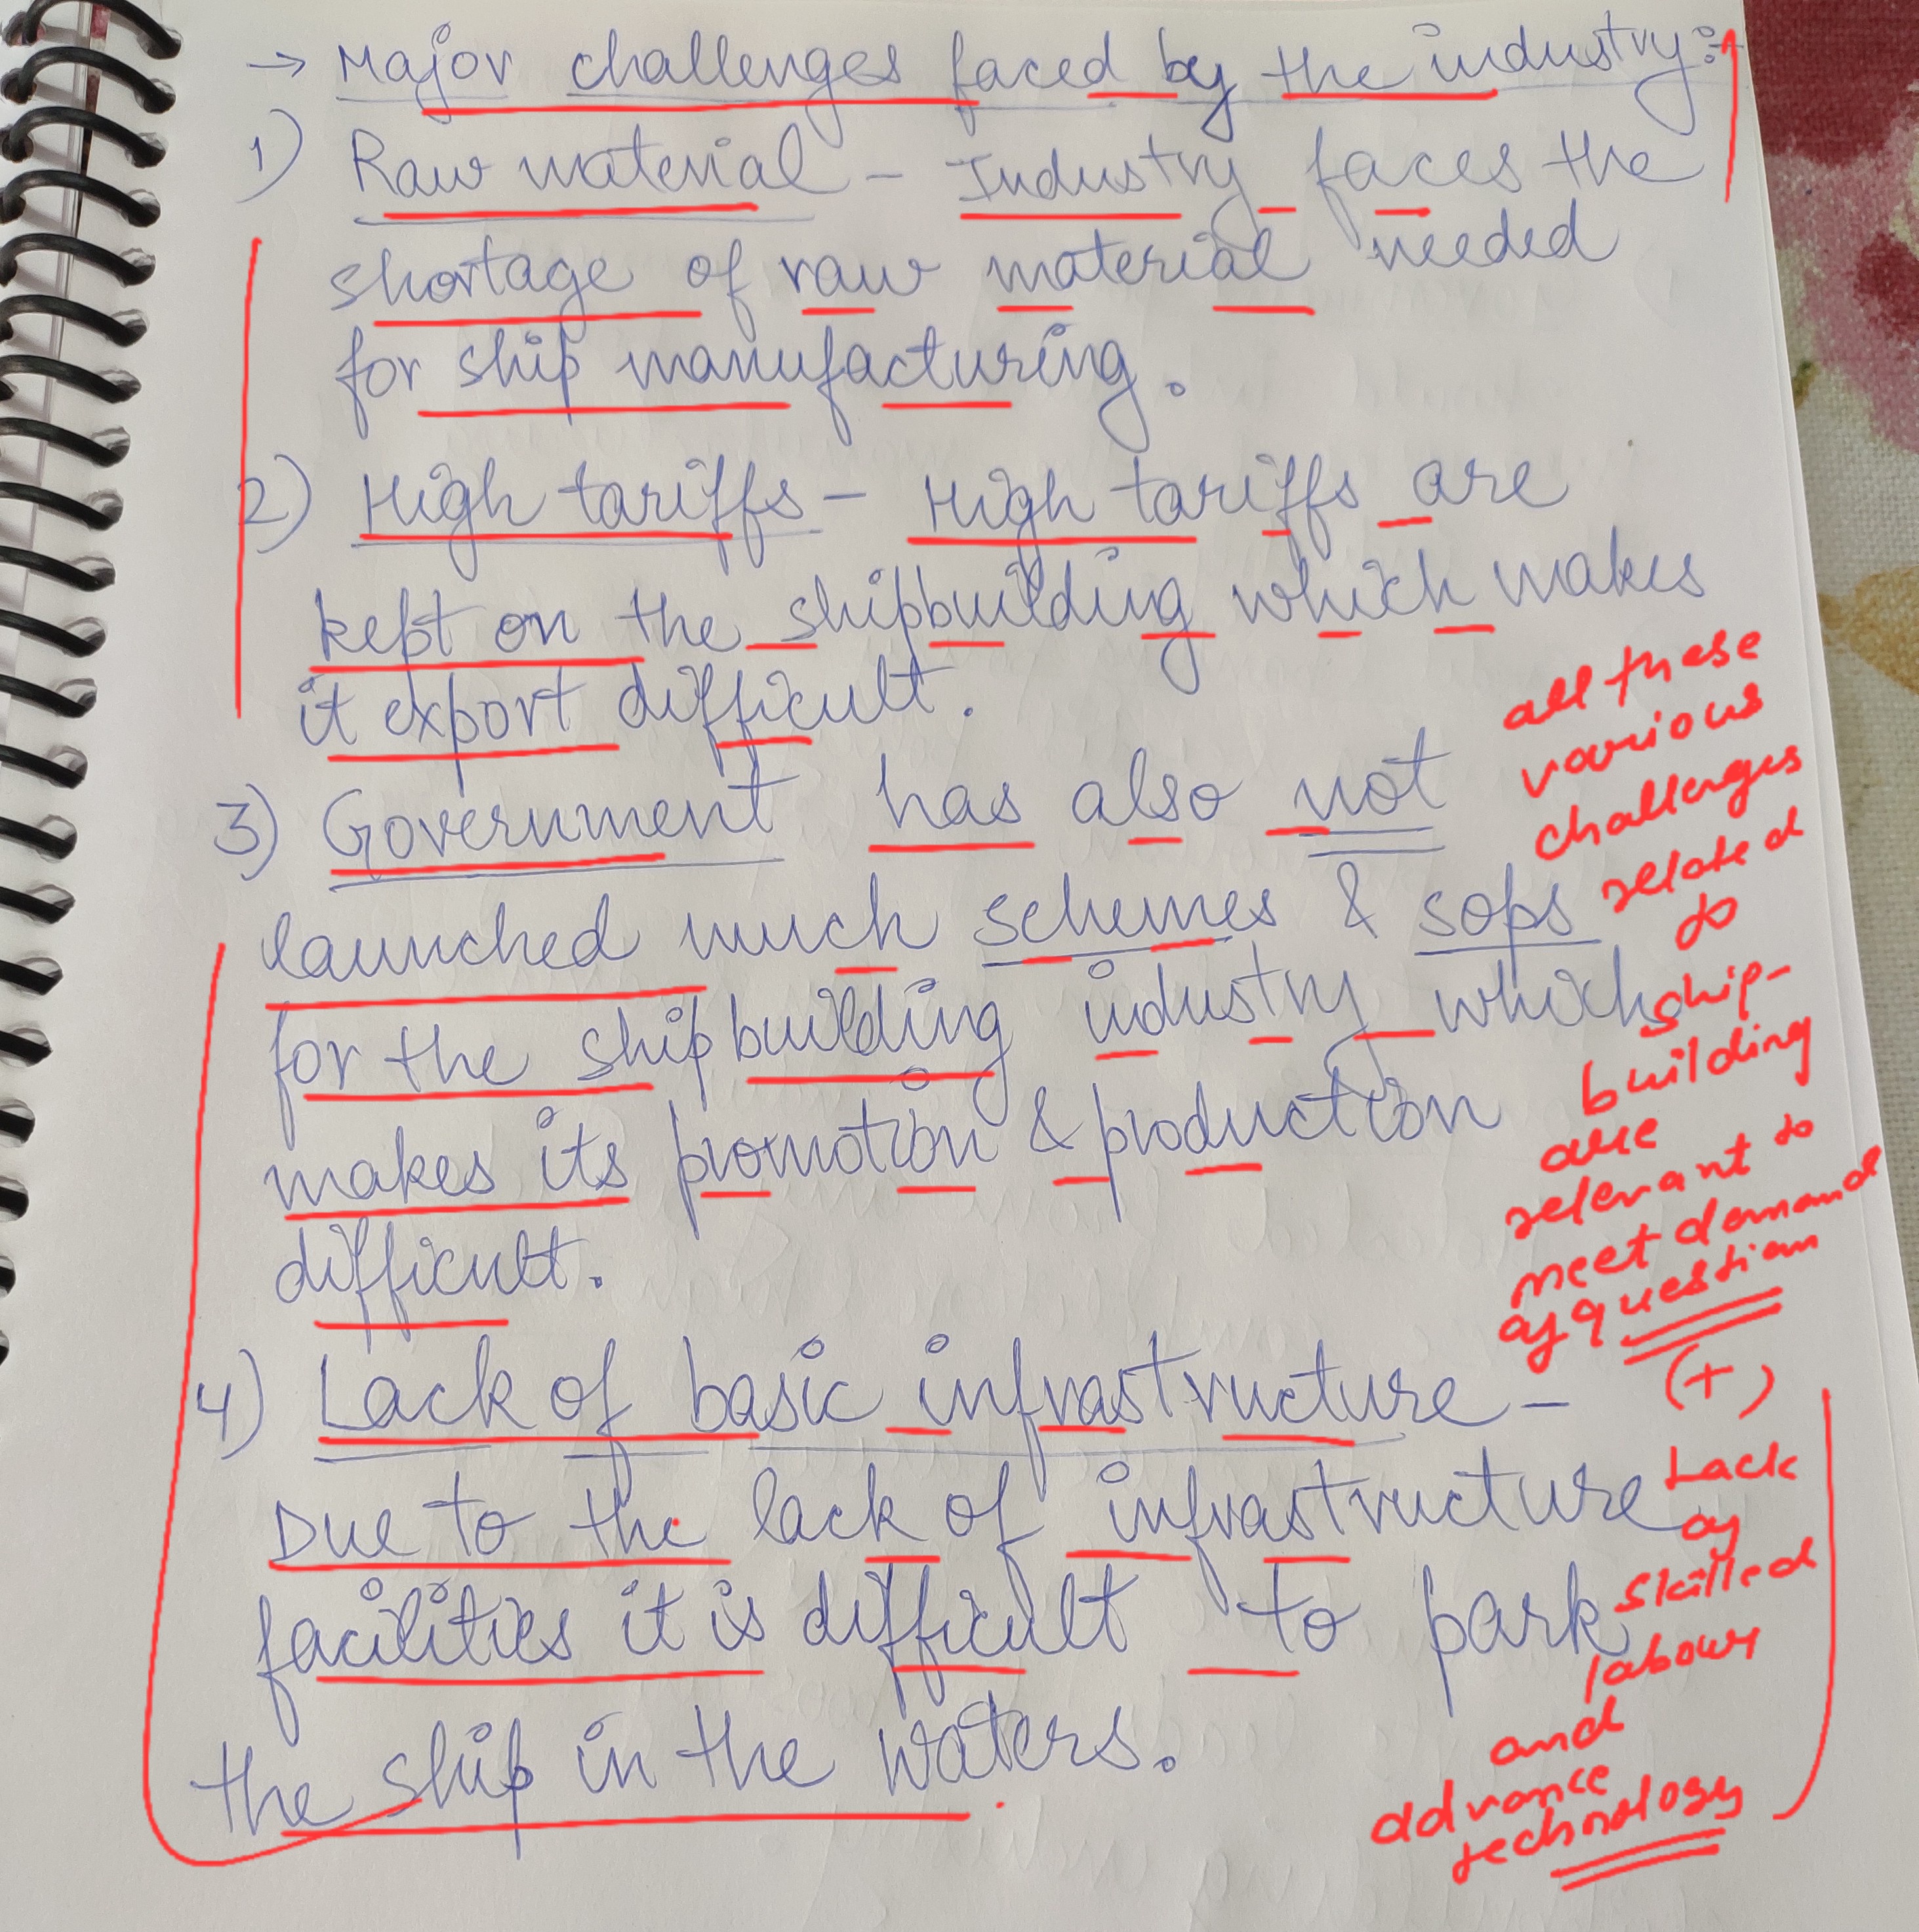 → Major challenges faced by the industry:-
1) Raw material - Industry faces the
shortage of raw material needed
for ship manufacturing.
2) High tariffs - High tariffs are
kept on the shipbuilding which makes
it export difficult.
3) Government has also not
launched much schemes & sops
for the shipbuilding industry which
makes its promotion & production
difficult.
4) Lack of basic infrastructure -
Due to the lack of infrastructure
facilities it is difficult to park
the ship in the waters.
all these
various
challenges
related
to
ship-
building
are
relevant to
meet demand
of question
(+)
Lack
of
skilled
labour
and
advance
technology